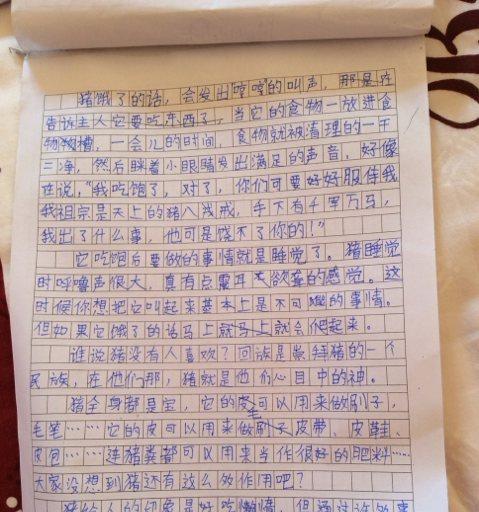 猪饿了的话，会发出哼哼的叫声，那是在
告诉主人它要吃东西了，当它的食物一放进食
物槽，一会儿的时间，食物就被清理的一干
二净，然后眯着小眼睛发出满足的声音，好像
在说，“我吃饱了，对了，你们可要好好服侍我
我祖宗是天上的猪八戒，手下有千军万马，
我出了什么事，他可是饶不了你的！”
它吃饱后要做的事情就是睡觉了。猪睡觉
时呼噜声很大，真有点震耳欲聋的感觉。这
时候你想把它叫起来基本上是不可能的事情。
但如果它饿了的话马上就会爬起来。
谁说猪没有人喜欢？回族是崇拜猪的一个
民族，在他们那，猪就是他们心目中的神。
猪全身都是宝，它的毛可以用来做刷子，
毛笔……它的皮可以用来做皮带、皮鞋、
皮包……连猪粪都可以用来当作很好的肥料……
大家没想到猪还有这么多作用吧？
猪给人的印象是好吃懒惰，但通过许的事